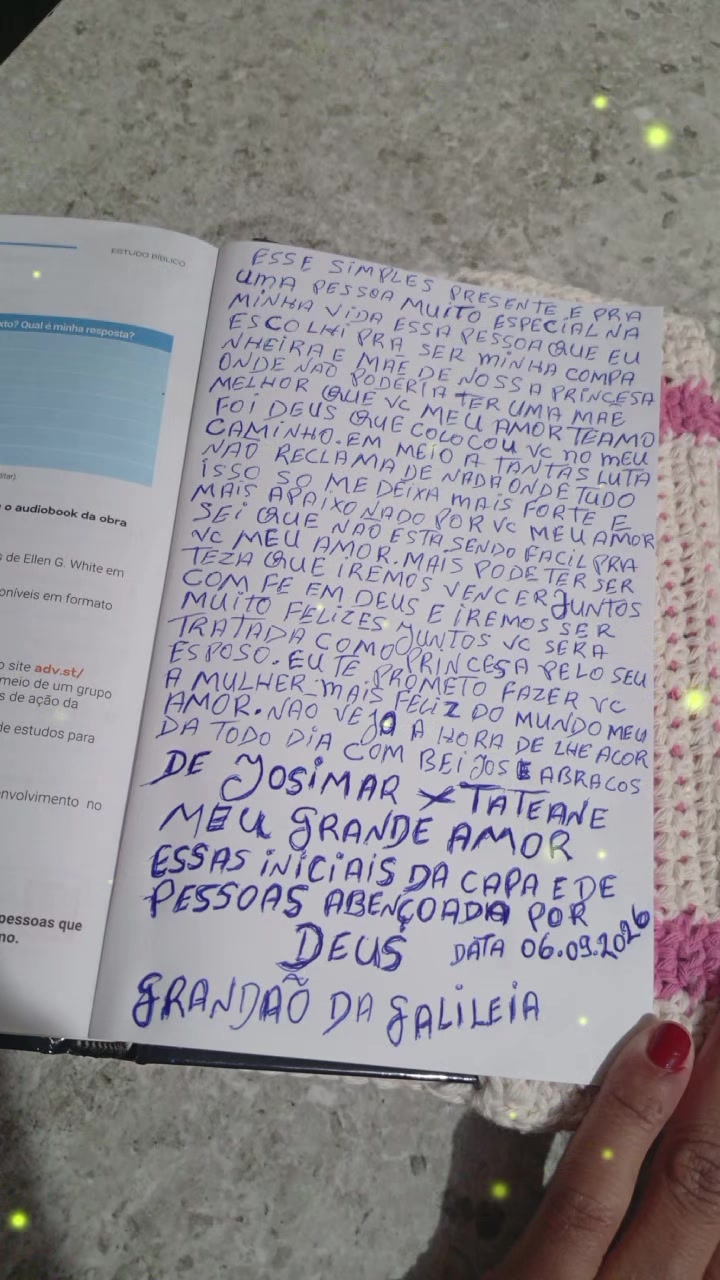 ESTUDO BÍBLICO
xto? Qual é minha resposta?
o audiobook da obra
s de Ellen G. White em
oníveis em formato
o site adv.st/
meio de um grupo
s de ação da
de estudos para
nvolvimento no
pessoas que
no.
ESSE SIMPLES PRESENTE É PRA
UMA PESSOA MUITO ESPECIAL NA
MINHA VIDA ESSA PESSOA QUE EU
ESCOLHI PRA SER MINHA COMPA
NHEIRA E MÃE DE NOSSA PRINCESA
ONDE NÃO PODERIA TER UMA MÃE
MELHOR QUE VC MEU AMOR TEAMO
FOI DEUS QUE COLOCOU VC NO MEU
CAMINHO. EM MEIO A TANTAS LUTA
NÃO RECLAMA DE NADA ONDE TUDO
ISSO SO ME DEIXA MAIS FORTE E
MAIS APAIXONADO POR VC MEU AMOR
SEI QUE NÃO ESTA SENDO FACIL PRA
VC MEU AMOR. MAIS PODE TER SER
TEZA QUE IREMOS VENCER JUNTOS
COM FE EM DEUS E IREMOS SER
MUITO FELIZES JUNTOS VC SERA
TRATADA COMO PRINCESA PELO SEU
ESPOSO. EU TE PROMETO FAZER VC
A MULHER MAIS FELIZ DO MUNDO MEU
AMOR. NÃO VEJO A HORA DE LHE ACOR
DA TODO DIA COM BEIJOS E ABRACOS
DE JOSIMAR X TATEANE
MEU GRANDE AMOR
ESSAS INICIAIS DA CAPA E DE
PESSOAS ABENÇOADA POR
DEUS DATA 06.09.2026
GRANDAÕ DA GALILEIA